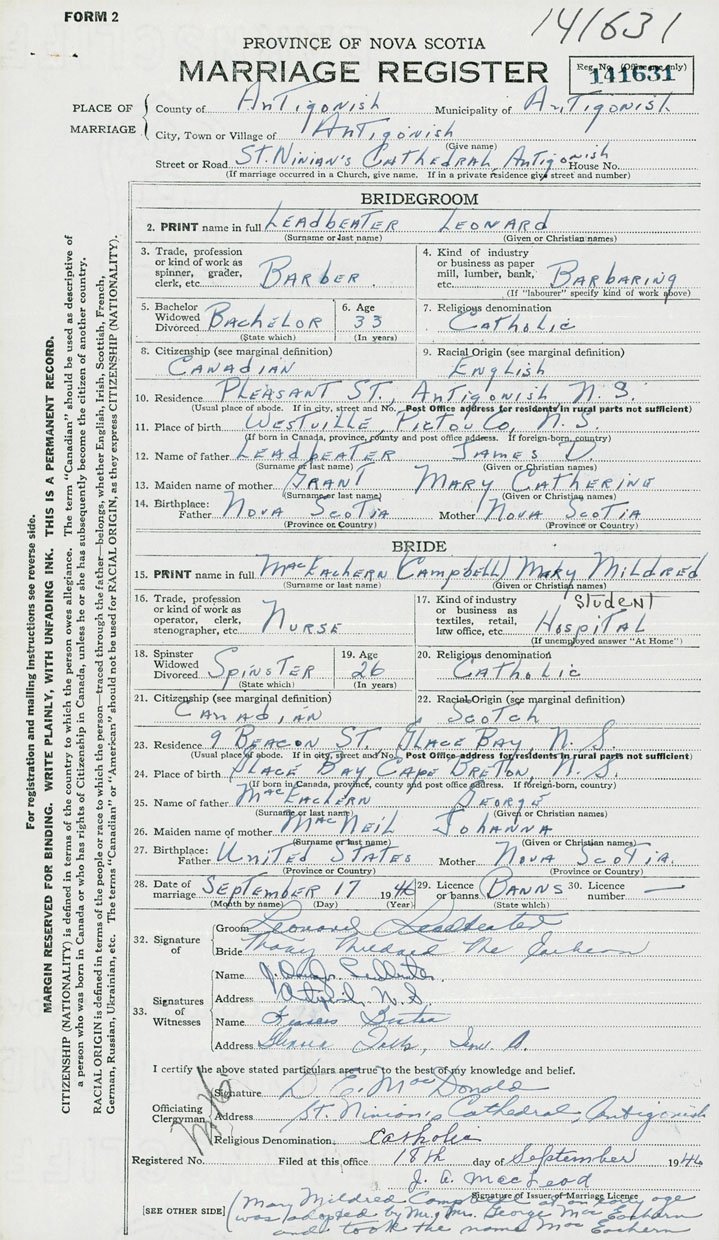 FORM 2
141631
PROVINCE OF NOVA SCOTIA
MARRIAGE REGISTER
Reg. No. (Office use only)
141631
PLACE OF MARRIAGE
County of Antigonish Municipality of Antigonish
City, Town or Village of Antigonish
(Give name)
Street or Road St. Ninian's Cathedral, Antigonish House No.
(If marriage occurred in a Church, give name. If in a private residence give street and number)
BRIDEGROOM
2. PRINT name in full Leadbeater Leonard
(Surname or last name) (Given or Christian names)
3. Trade, profession or kind of work as spinner, grader, clerk, etc. Barber
4. Kind of industry or business as paper mill, lumber, bank, etc. Barbaring
(If "labourer" specify kind of work above)
5. Bachelor Widowed Divorced Bachelor
(State which)
6. Age 33
(In years)
7. Religious denomination Catholic
8. Citizenship (see marginal definition) Canadian
9. Racial Origin (see marginal definition) English
10. Residence Pleasant St., Antigonish N.S.
(Usual place of abode. If in city, street and No. Post Office address for residents in rural parts not sufficient)
11. Place of birth Westville, Pictou Co, N.S.
(If born in Canada, province, county and post office address. If foreign-born, country)
12. Name of father Leadbeater James D.
(Surname or last name) (Given or Christian names)
13. Maiden name of mother Grant Mary Catherine
(Surname or last name) (Given or Christian names)
14. Birthplace: Father Nova Scotia Mother Nova Scotia
(Province or Country) (Province or Country)
BRIDE
15. PRINT name in full MacEachern (Campbell) Mary Mildred
(Surname or last name) (Given or Christian names)
16. Trade, profession or kind of work as operator, clerk, stenographer, etc. Nurse
17. Kind of industry or business as textiles, retail, law office, etc. Student Hospital
(If unemployed answer "At Home")
18. Spinster Widowed Divorced Spinster
(State which)
19. Age 26
(In years)
20. Religious denomination Catholic
21. Citizenship (see marginal definition) Canadian
22. Racial Origin (see marginal definition) Scotch
23. Residence 9 Beacon St. Glace Bay, N.S.
(Usual place of abode. If in city, street and No. Post Office address for residents in rural parts not sufficient)
24. Place of birth Glace Bay, Cape Breton, N.S.
(If born in Canada, province, county and post office address. If foreign-born, country)
25. Name of father MacEachern George
(Surname or last name) (Given or Christian names)
26. Maiden name of mother MacNeil Johanna
(Surname or last name) (Given or Christian names)
27. Birthplace: Father United States Mother Nova Scotia.
(Province or Country) (Province or Country)
28. Date of marriage September 17 1946
(Month by name) (Day) (Year)
29. Licence or banns Banns
(State which)
30. Licence number —
32. Signature of
Groom Leonard Leadbeater
Bride Mary Mildred Mac Eachern
33. Signatures of Witnesses
Name Leadbeater
Address Antigonish, N.S.
Name
Address
I certify the above stated particulars are true to the best of my knowledge and belief.
Officiating Clergyman
Signature D. E. MacDonald
Address St. Ninian's Cathedral, Antigonish
Religious Denomination Catholic
Registered No. Filed at this office 18th day of September 1946
J. A. MacLeod
Signature of Issuer of Marriage Licence
[SEE OTHER SIDE]
(Mary Mildred Campbell at an early age
was adopted by Mr. & Mrs. George Mac Eachern
and took the name Mac Eachern
For registration and mailing instructions see reverse side.
MARGIN RESERVED FOR BINDING. WRITE PLAINLY, WITH UNFADING INK. THIS IS A PERMANENT RECORD.
CITIZENSHIP (NATIONALITY) is defined in terms of the country to which the person owes allegiance. The term "Canadian" should be used as descriptive of
a person who was born in Canada or who has rights of Citizenship in Canada, unless he or she has subsequently become the citizen of another country.
RACIAL ORIGIN is defined in terms of the people or race to which the person—traced through the father—belongs, whether English, Irish, Scottish, French,
German, Russian, Ukrainian, etc. The terms "Canadian" or "American" should not be used for RACIAL ORIGIN, as they express CITIZENSHIP (NATIONALITY).